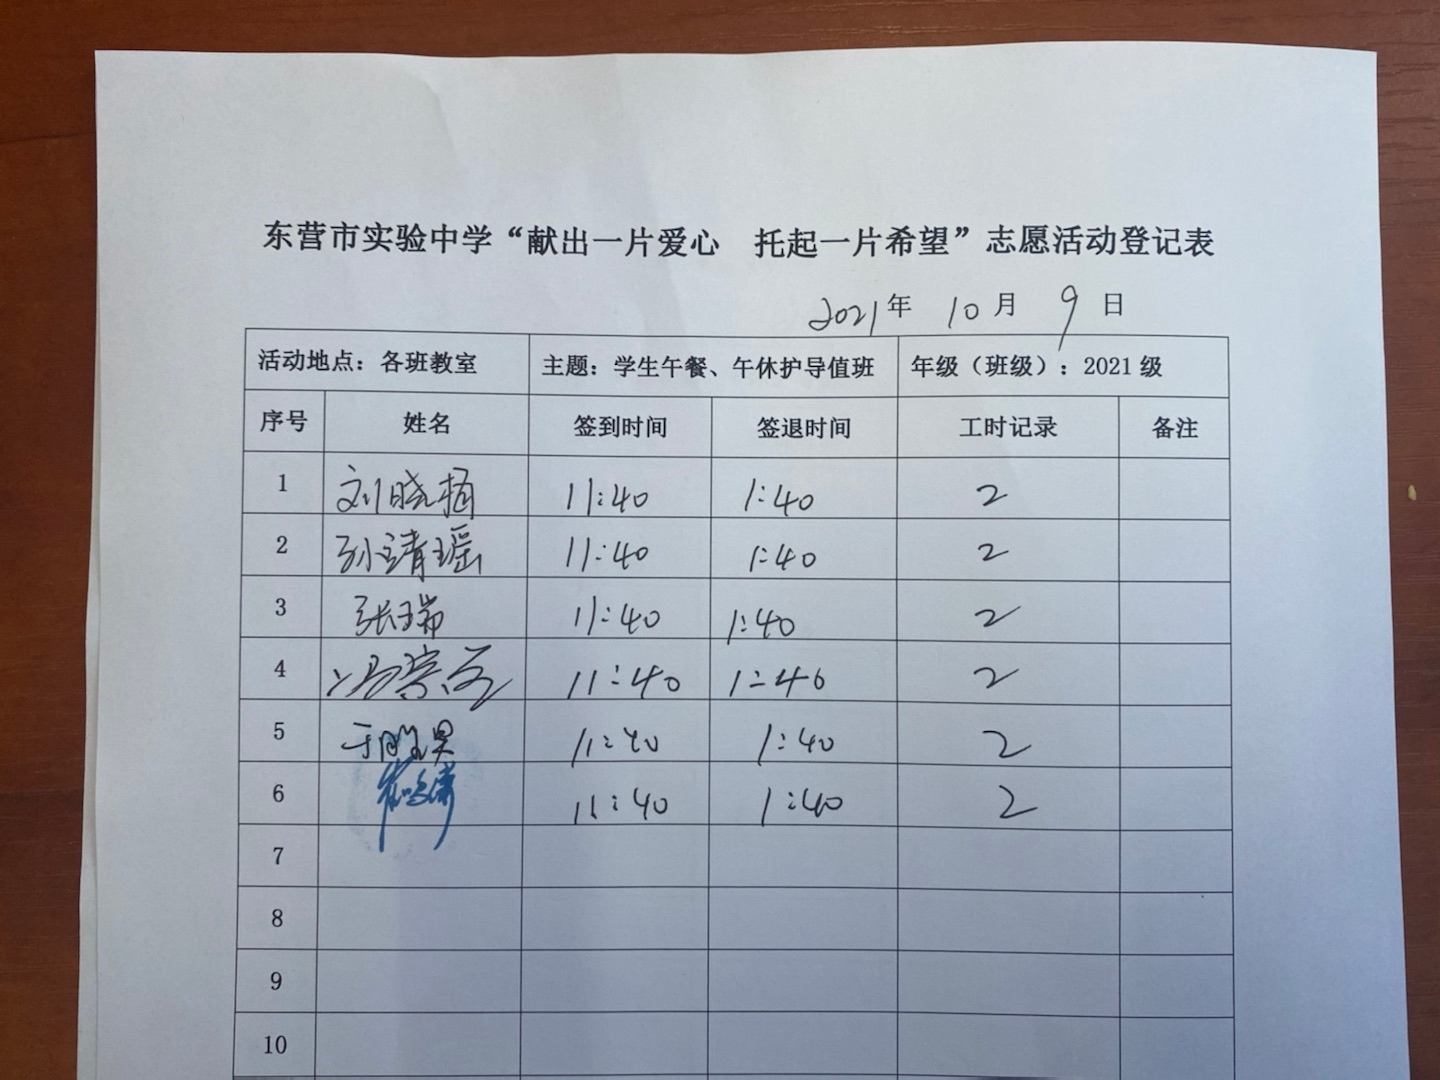 东营市实验中学“献出一片爱心 托起一片希望”志愿活动登记表
2021年 10月 9日
活动地点：各班教室 主题：学生午餐、午休护导值班 年级（班级）：2021级
序号 姓名 签到时间 签退时间 工时记录 备注
1 刘晓 11:40 1:40 2
2 孙靖瑶 11:40 1:40 2
3 张瑞 11:40 1:40 2
4 冯 11:40 1:40 2
5 于 昊 11:40 1:40 2
6 11:40 1:40 2
7
8
9
10